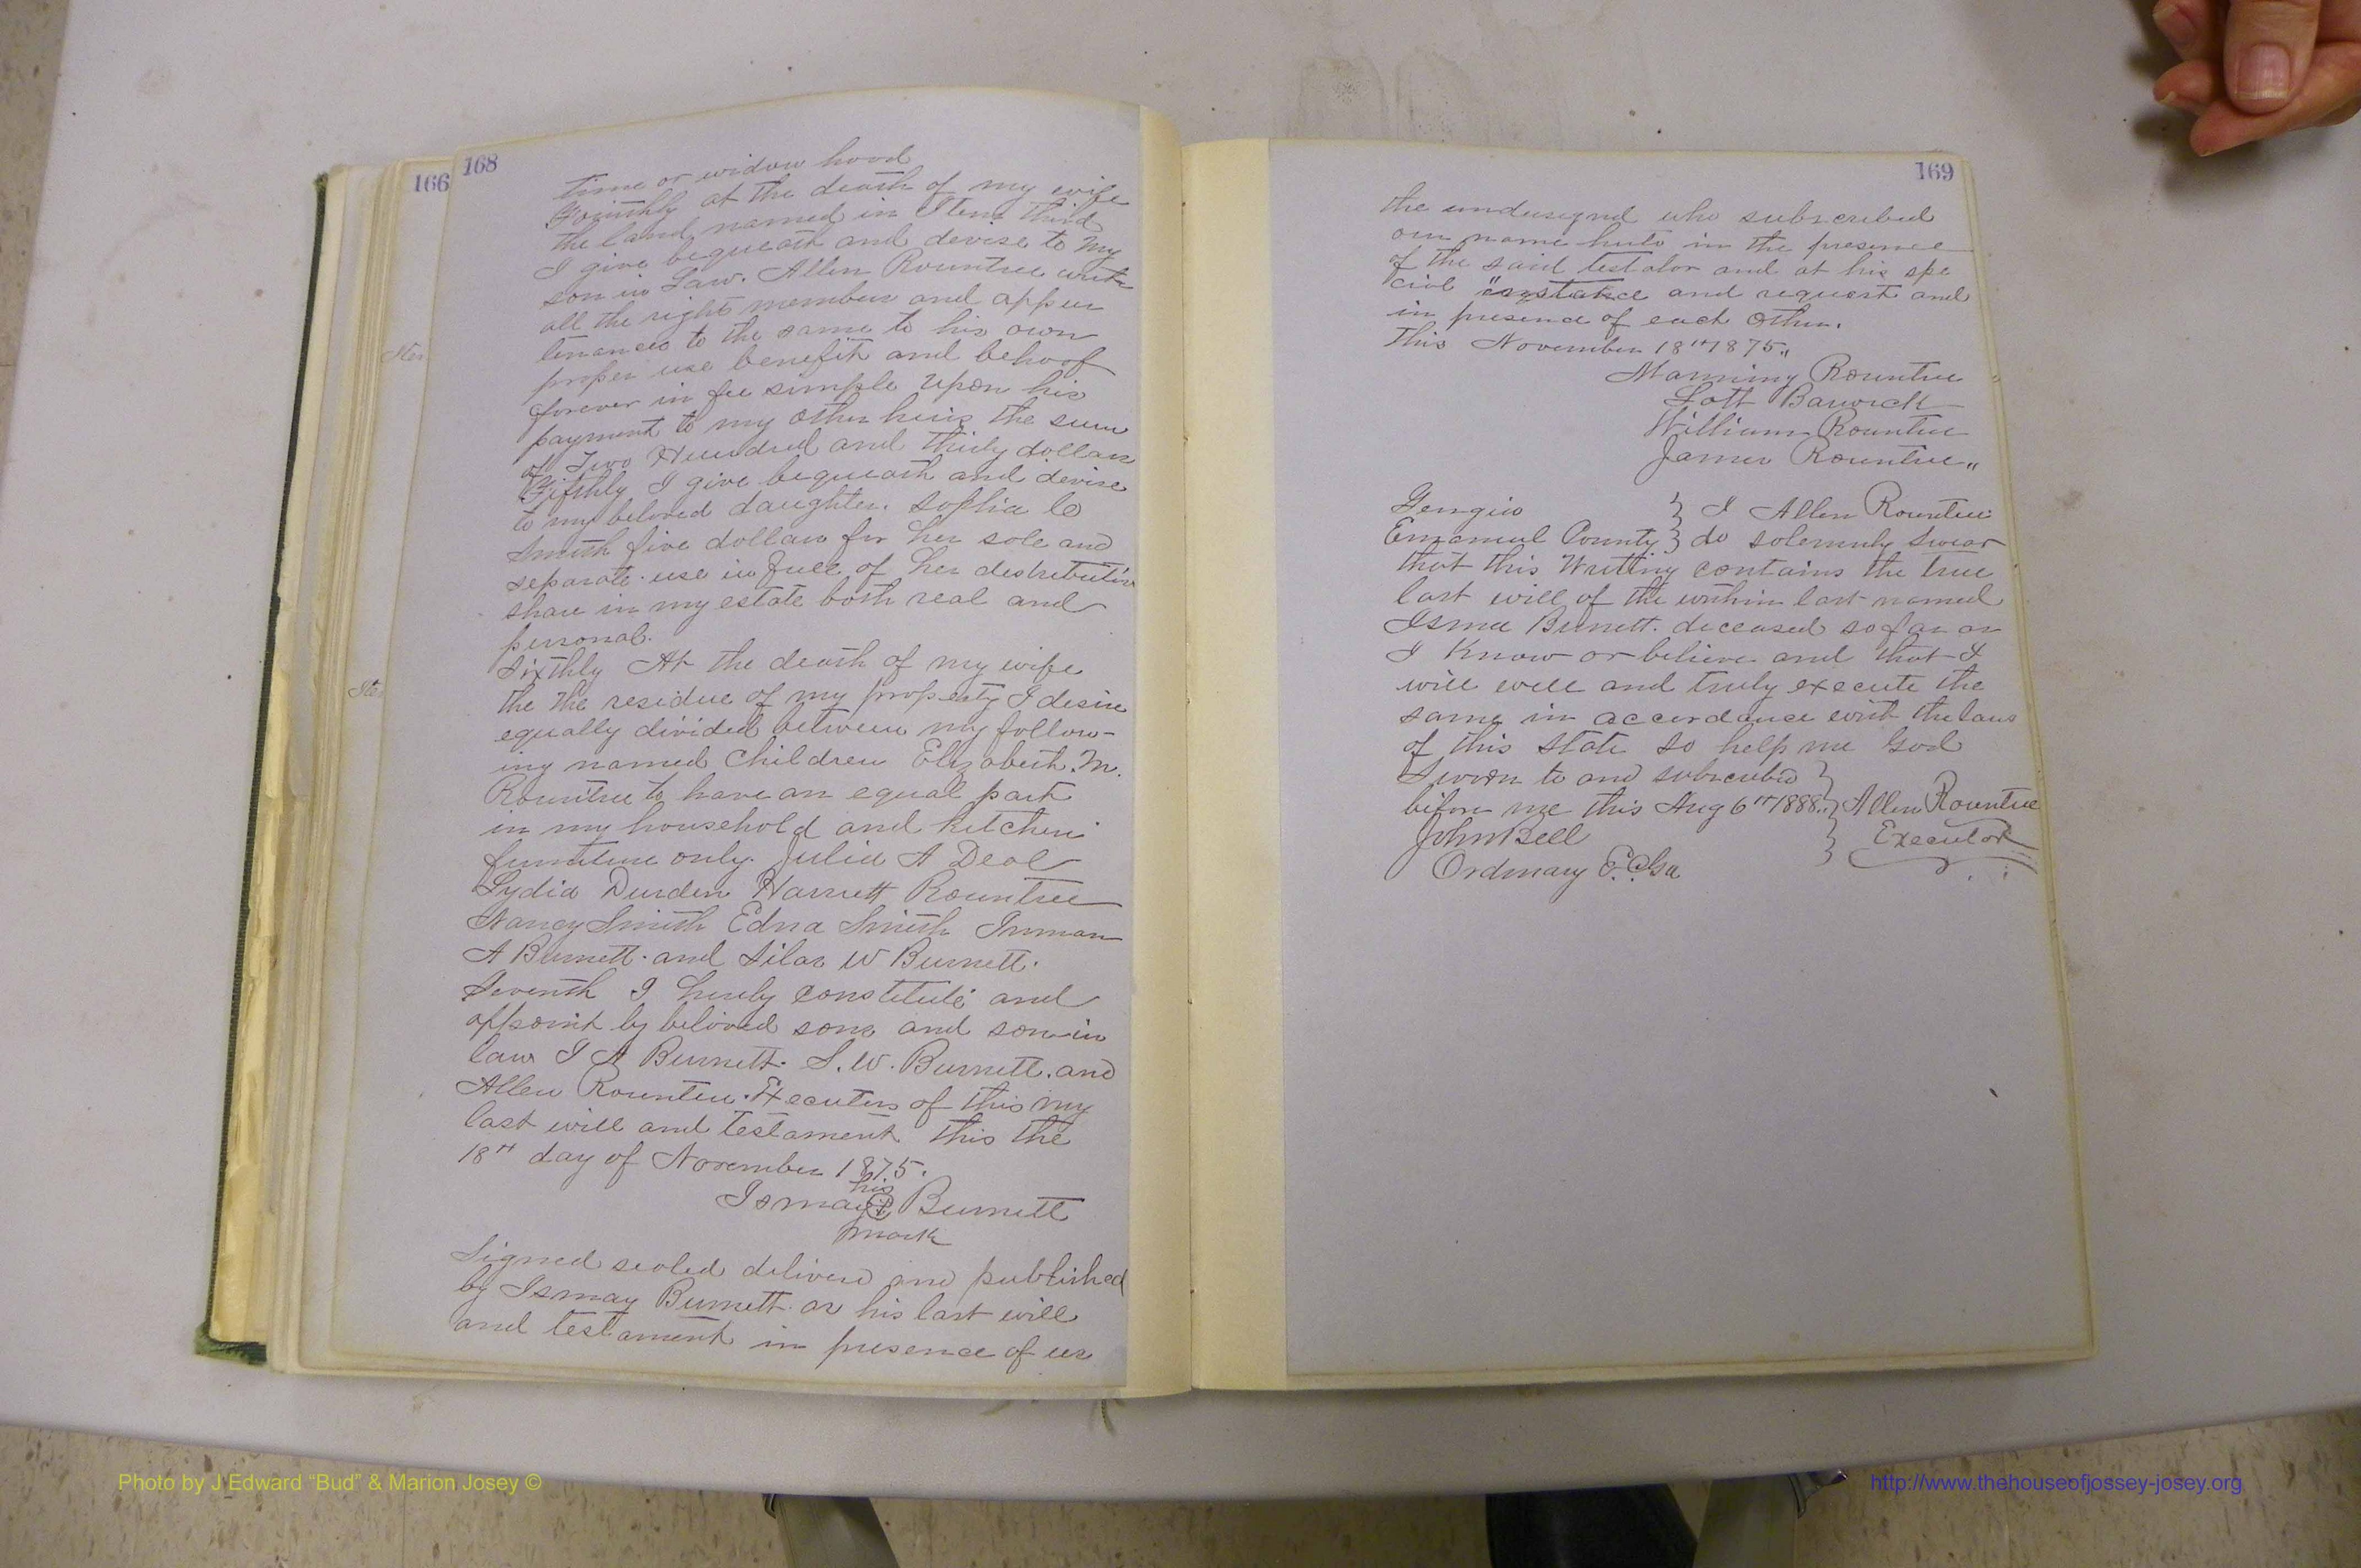 166
168
time or widow hood
Fourthly at the death of my wife
the land named in Item third
I give bequeath and devise to My
son in Law. Allen Rountree with
all the right member and appur
tenances to the same to his own
proper use benefit and behoof
forever in fee simple upon his
payment to my other heirs the sum
of Two Hundred and thirty dollars
Fifthly I give bequeath and devise
to my beloved daughter. Sophia
Smith five dollars for her sole and
separate use in full of her distributive
share in my estate both real and
personal.
Sixthly At the death of my wife
the the residue of my property I desire
equally divided between my follow-
ing named Children Elizabeth. M.
Rountree to have an equal part
in my household and kitchen
furniture only. Julia A Deal
Lydia Durden Harrett Rountree
Nancy Smith Edna Smith Inman
A Burnett. and Silas W Burnett.
Seventh I hereby constitute and
appoint by beloved sons and son in
law I A Burnett. S. W. Burnett. and
Allen Rountree. Executors of this my
last will and testament this the
18th day of November 1875.
his
Ismay Burnett
mark
Signed sealed delivered and published
by Ismay Burnett as his last will
and testament in presence of us
Item
Ite
169
the undersigned who subscribed
our name hereto in the presence
of the said testator and at his spe
cial "instance and request and
in presence of each other.
This November 18th 1875"
Manning Rountree
Lott Barwick
William Rountree
James Rountree"
Georgia } I Allen Rountree
Emanuel County } do solemnly swear
that this Writing contains the true
last will of the within last named
Isma Burnett. deceased so far as
I Know or believe and that I
will well and truly execute the
same in accordance with the laws
of this State so help me God
Sworn to and subscribed }
before me this Aug 6th 1888. } Allen Rountree
John Bell } Executor
Ordinary E.C. Ga
Photo by J Edward “Bud” & Marion Josey ©
http://www.thehouseofjossey-josey.org